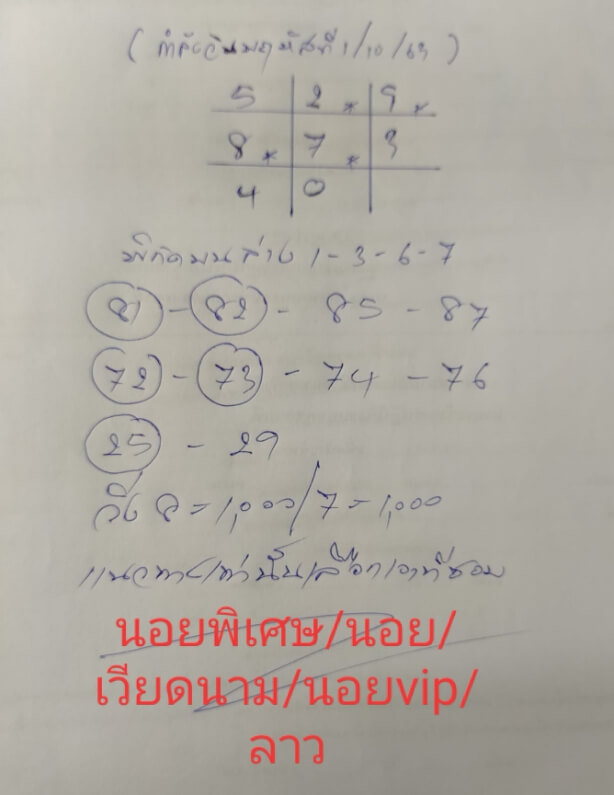 (กำลังวันพฤหัสที่ 1/10/63)
5 2 × 9 ×
8 × 7 × 3
4 0
พิกัดบนล่าง 1-3-6-7
81 - 82 - 85 - 87
72 - 73 - 74 - 76
25 - 29
วิ่ง 8 = 1,000/7 = 1,000
แนวทางเท่านั้นเลือกเอาที่ชอบ
นอยพิเศษ/นอย/
เวียดนาม/นอยvip/
ลาว